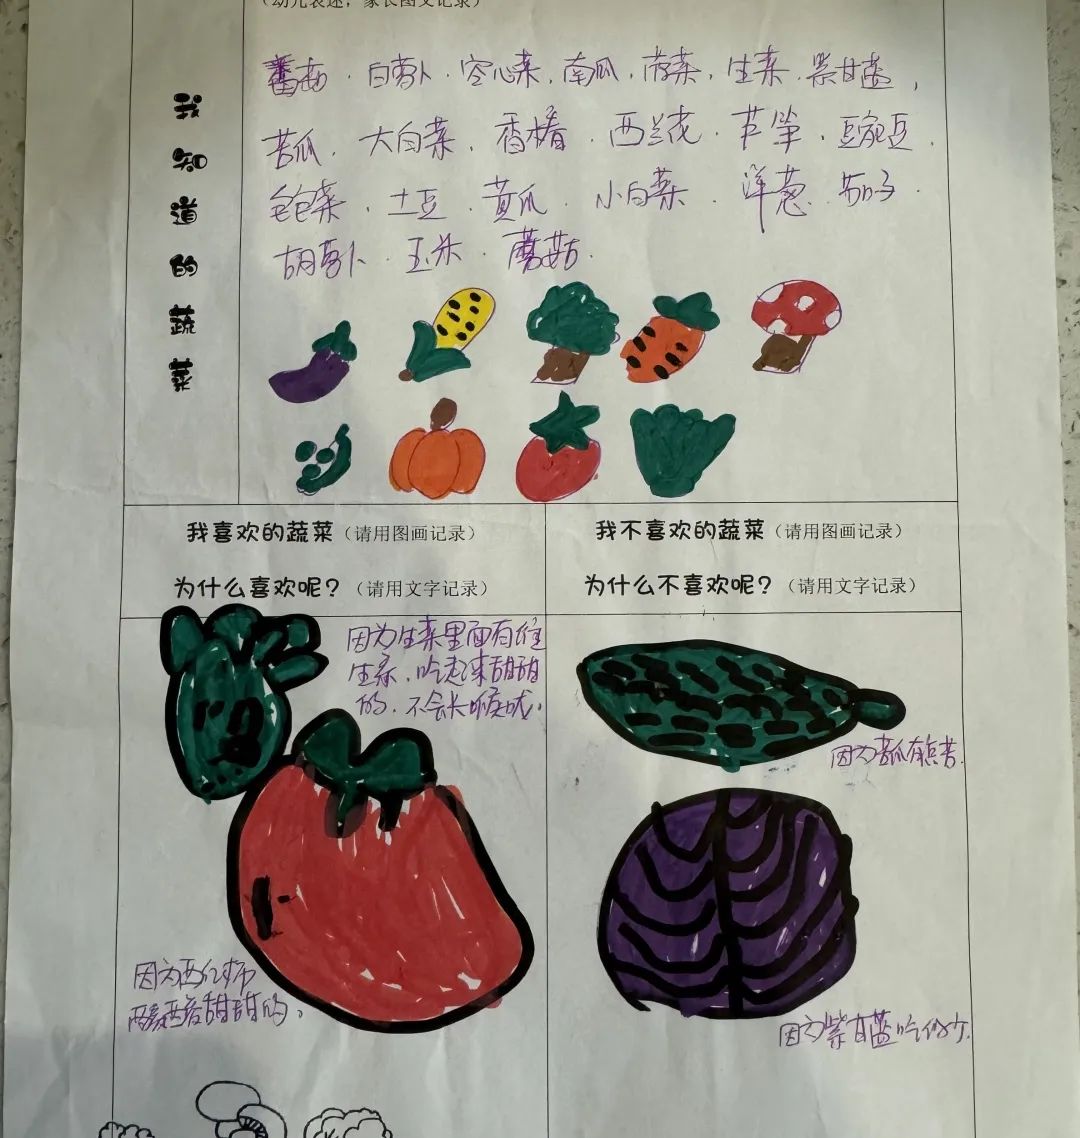 （幼儿表述，家长图文记录）
我知道的蔬菜
番茄、白萝卜、空心菜、南瓜、菠菜、生菜、紫甘蓝，
苦瓜、大白菜、香椿、西兰花、芦笋、豌豆、
包菜、土豆、黄瓜、小白菜、洋葱、茄子、
胡萝卜、玉米、蘑菇.
我喜欢的蔬菜（请用图画记录）
为什么喜欢呢？（请用文字记录）
我不喜欢的蔬菜（请用图画记录）
为什么不喜欢呢？（请用文字记录）
因为生菜里面有维
生素，吃起来甜甜
的，不会长
因为西红柿
酸酸甜甜的。
因为苦瓜有点苦.
因为紫甘蓝吃